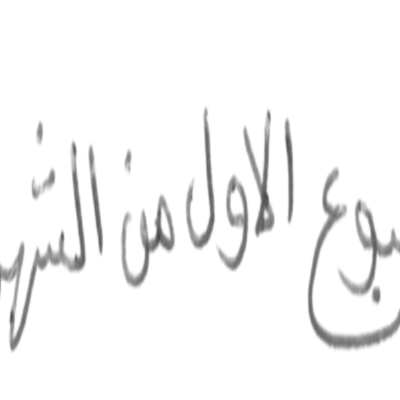 بوع الاول من الشهر